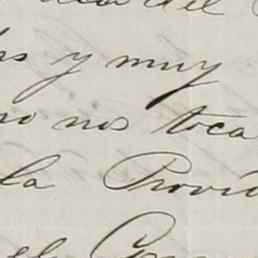 del
y muy
no nos toca
la Provi
el